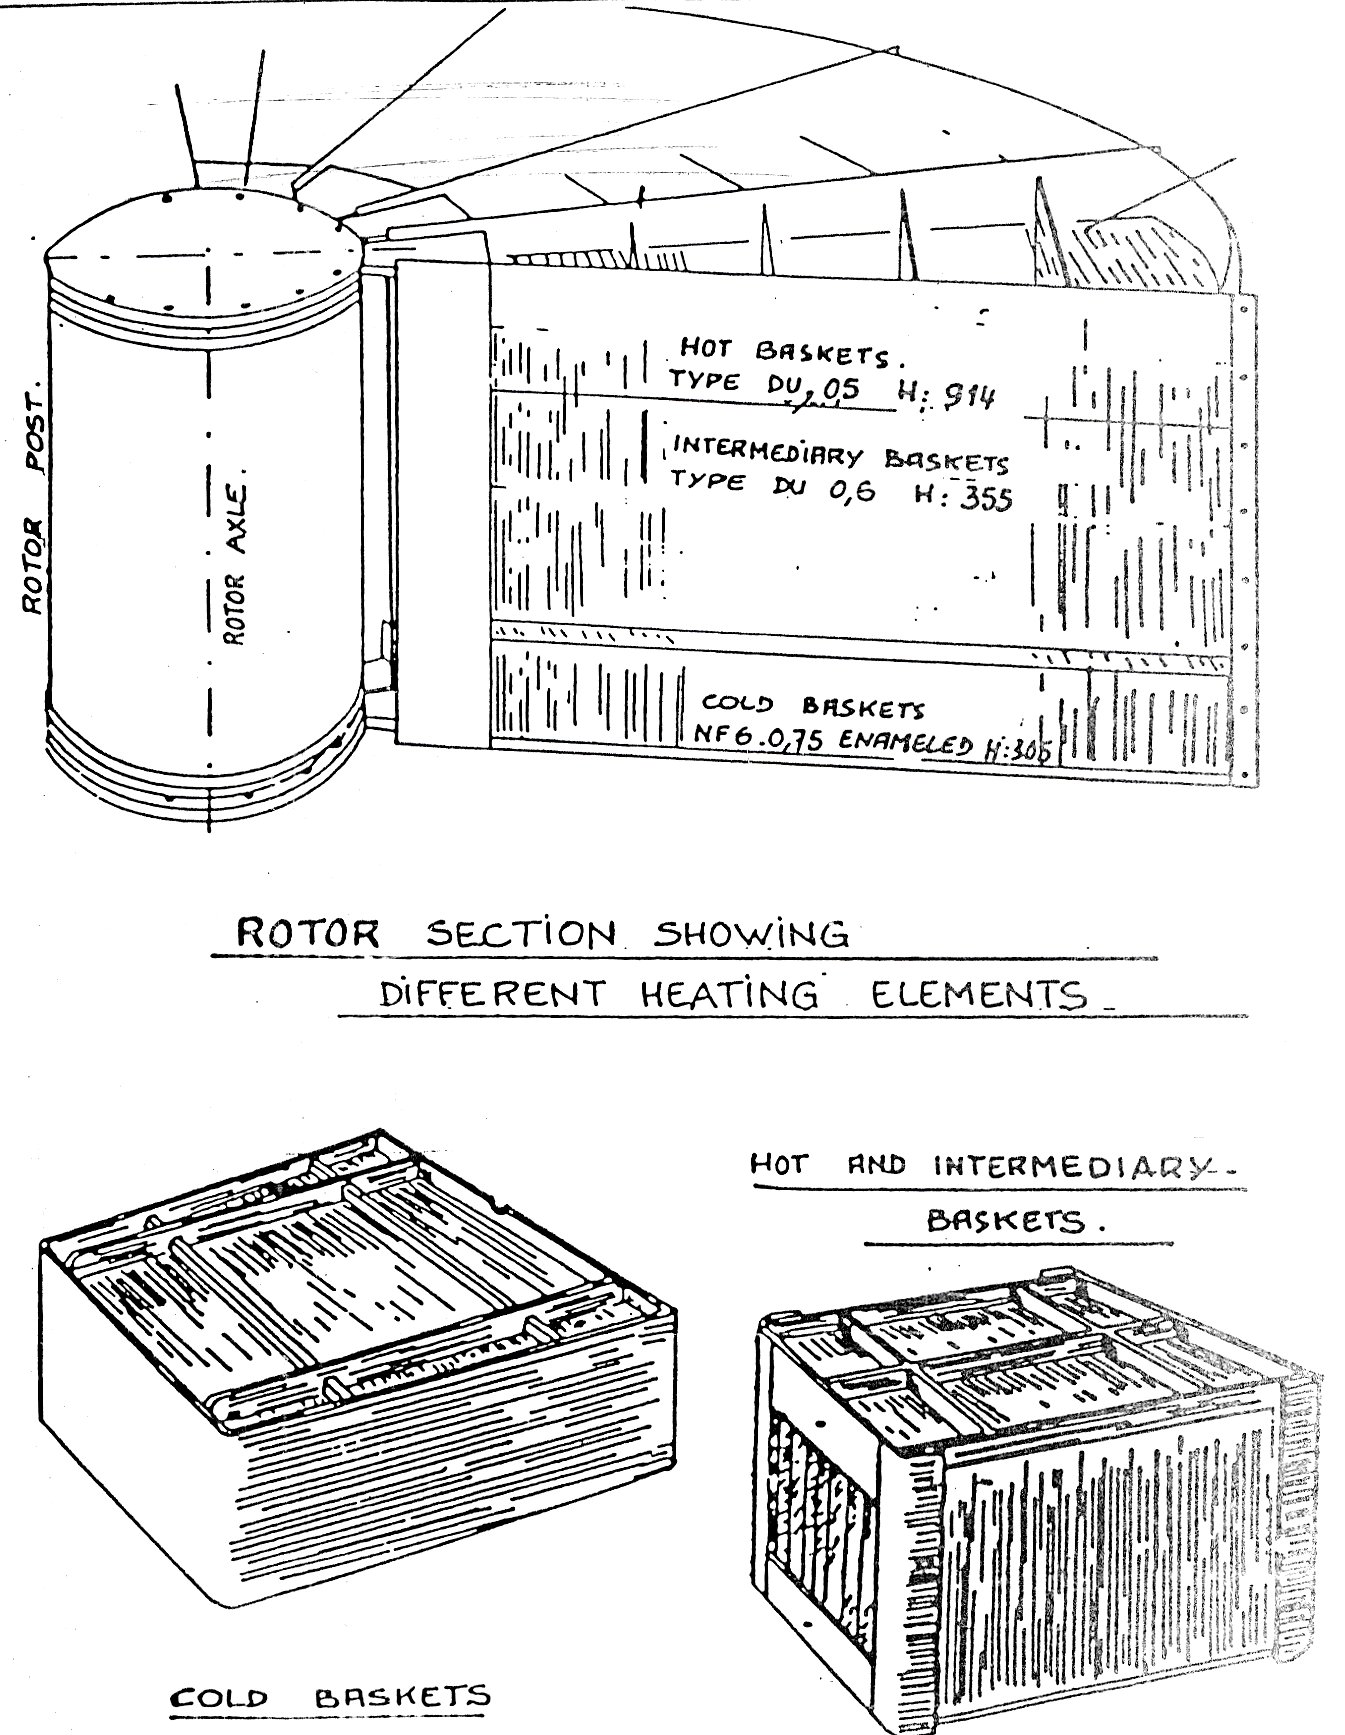 ROTOR POST.
ROTOR AXLE.
HOT BASKETS.
TYPE DU 0,5 H: 914
INTERMEDiARY BASKETS
TYPE DU 0,6 H: 355
COLD BASKETS
NF6.0,75 ENAMELED H:305
ROTOR SECTiON SHOWiNG
DiFFERENT HEATiNG ELEMENTS
HOT AND INTERMEDIARY
BASKETS.
COLD BASKETS